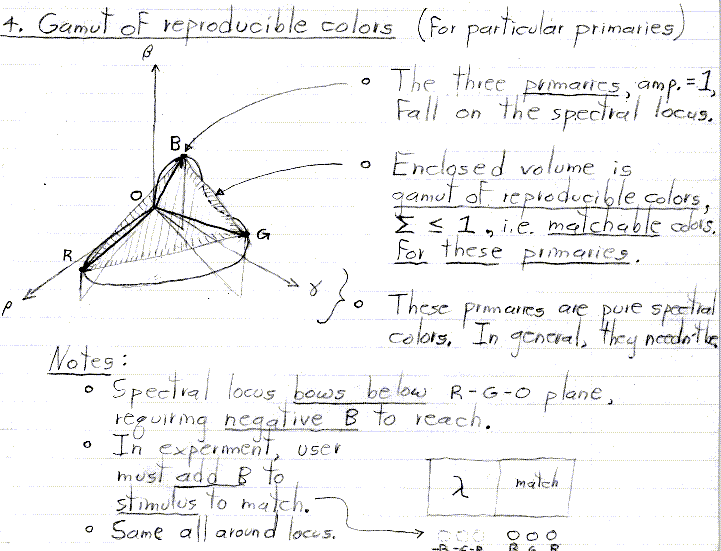 4. Gamut of reproducible colors (for particular primaries)
β
o The three primaries, amp.=1,
fall on the spectral locus.
B
o Enclosed volume is
gamut of reproducible colors,
O
Σ ≤ 1, i.e. matchable colors.
G
for these primaries.
R
ρ
γ
o These primaries are pure spectral
colors. In general, they needn't be
Notes:
o Spectral locus bows below R-G-O plane,
requiring negative B to reach.
o In experiment, user
must add B to
stimulus to match.
λ match
o Same all around locus.
-B -G -R B G R